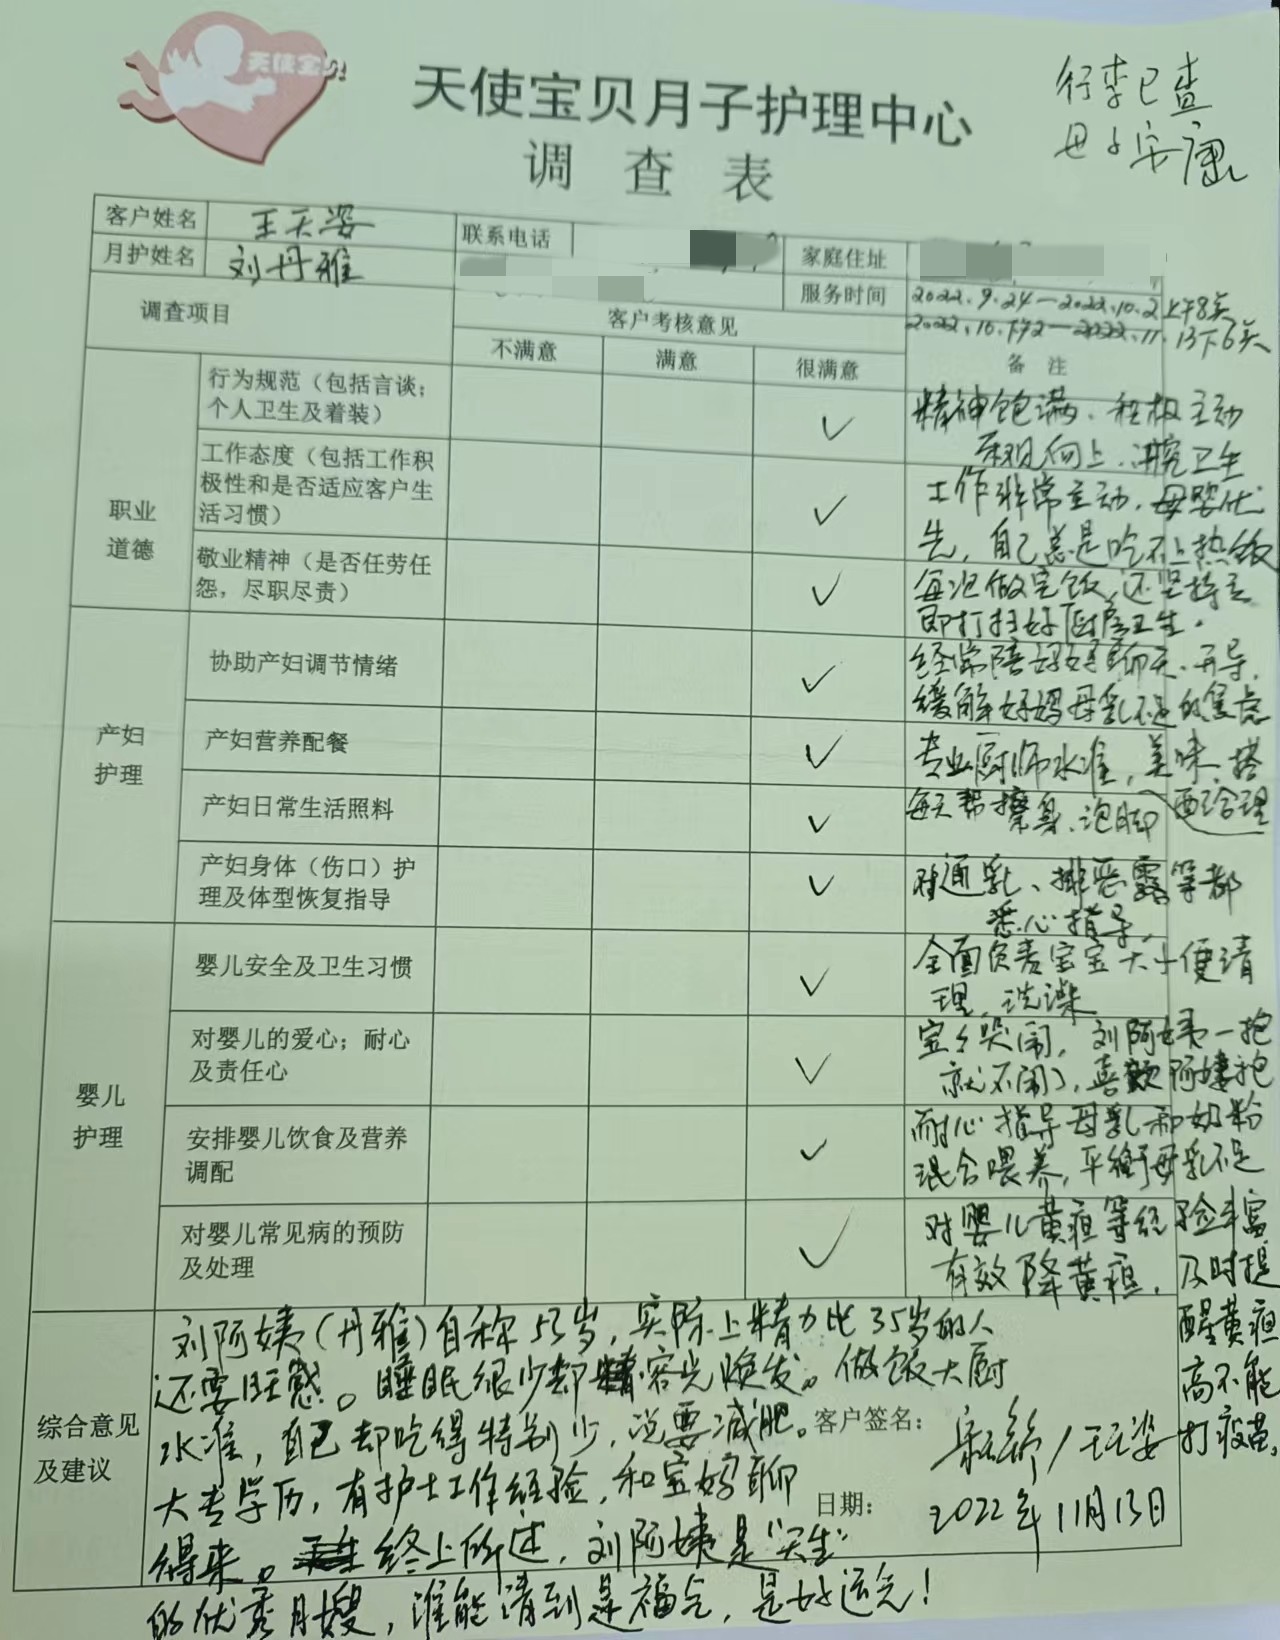 天使宝贝
天使宝贝月子护理中心
调查表
行李已查
母子安康
客户姓名 王天姿 联系电话 家庭住址
月护姓名 刘丹雅 服务时间 2022.9.24—2022.10.2上午8关
调查项目 客户考核意见
不满意 满意 很满意 备注
职业
道德
行为规范（包括言谈；
个人卫生及着装）
精神饱满、积极主动
乐观向上、讲究卫生
工作态度（包括工作积
极性和是否适应客户生
活习惯）
工作非常主动，母婴优
先，自己总是吃不上热饭
敬业精神（是否任劳任
怨，尽职尽责）
每次做完饭，还坚持立
即打扫好厨房卫生。
产妇
护理
协助产妇调节情绪
经常陪妈妈聊天、开导，
缓解妈妈母乳不足的焦虑
产妇营养配餐
专业厨师水准，美味、搭
配合理
产妇日常生活照料
每天帮擦身、泡脚
产妇身体（伤口）护
理及体型恢复指导
对通乳、排恶露等都
悉心指导，
婴儿
护理
婴儿安全及卫生习惯
全面负责宝宝大小便清
理，洗澡
对婴儿的爱心；耐心
及责任心
宝宝哭闹，刘阿姨一抱
就不闹，喜欢阿姨抱
安排婴儿饮食及营养
调配
耐心指导母乳和奶粉
混合喂养，平衡母乳不足
对婴儿常见病的预防
及处理
对婴儿黄疸等经验丰富
有效降黄疸，及时提
醒黄疸
高不能
打疫苗。
综合意见
及建议
刘阿姨（丹雅）自称53岁，实际上精力比35岁的人
还要旺盛。睡眠很少却容光焕发。做饭大厨
水准，自己却吃得特别少，说要减肥。
大专学历，有护士工作经验，和宝妈聊
得来。终上所述，刘阿姨是“天生”
的优秀月嫂，谁能请到是福气，是好运气！
客户签名：
日期： 2022年11月13日